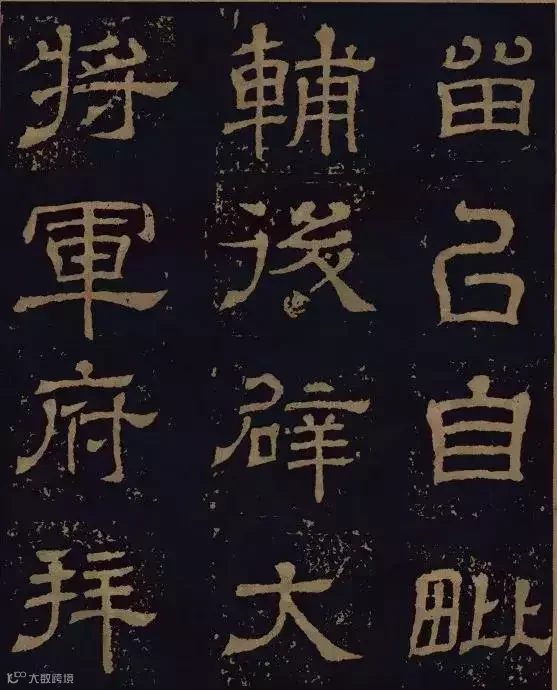 留㠯自毗
輔後辟大
將軍府拜
大数跨境